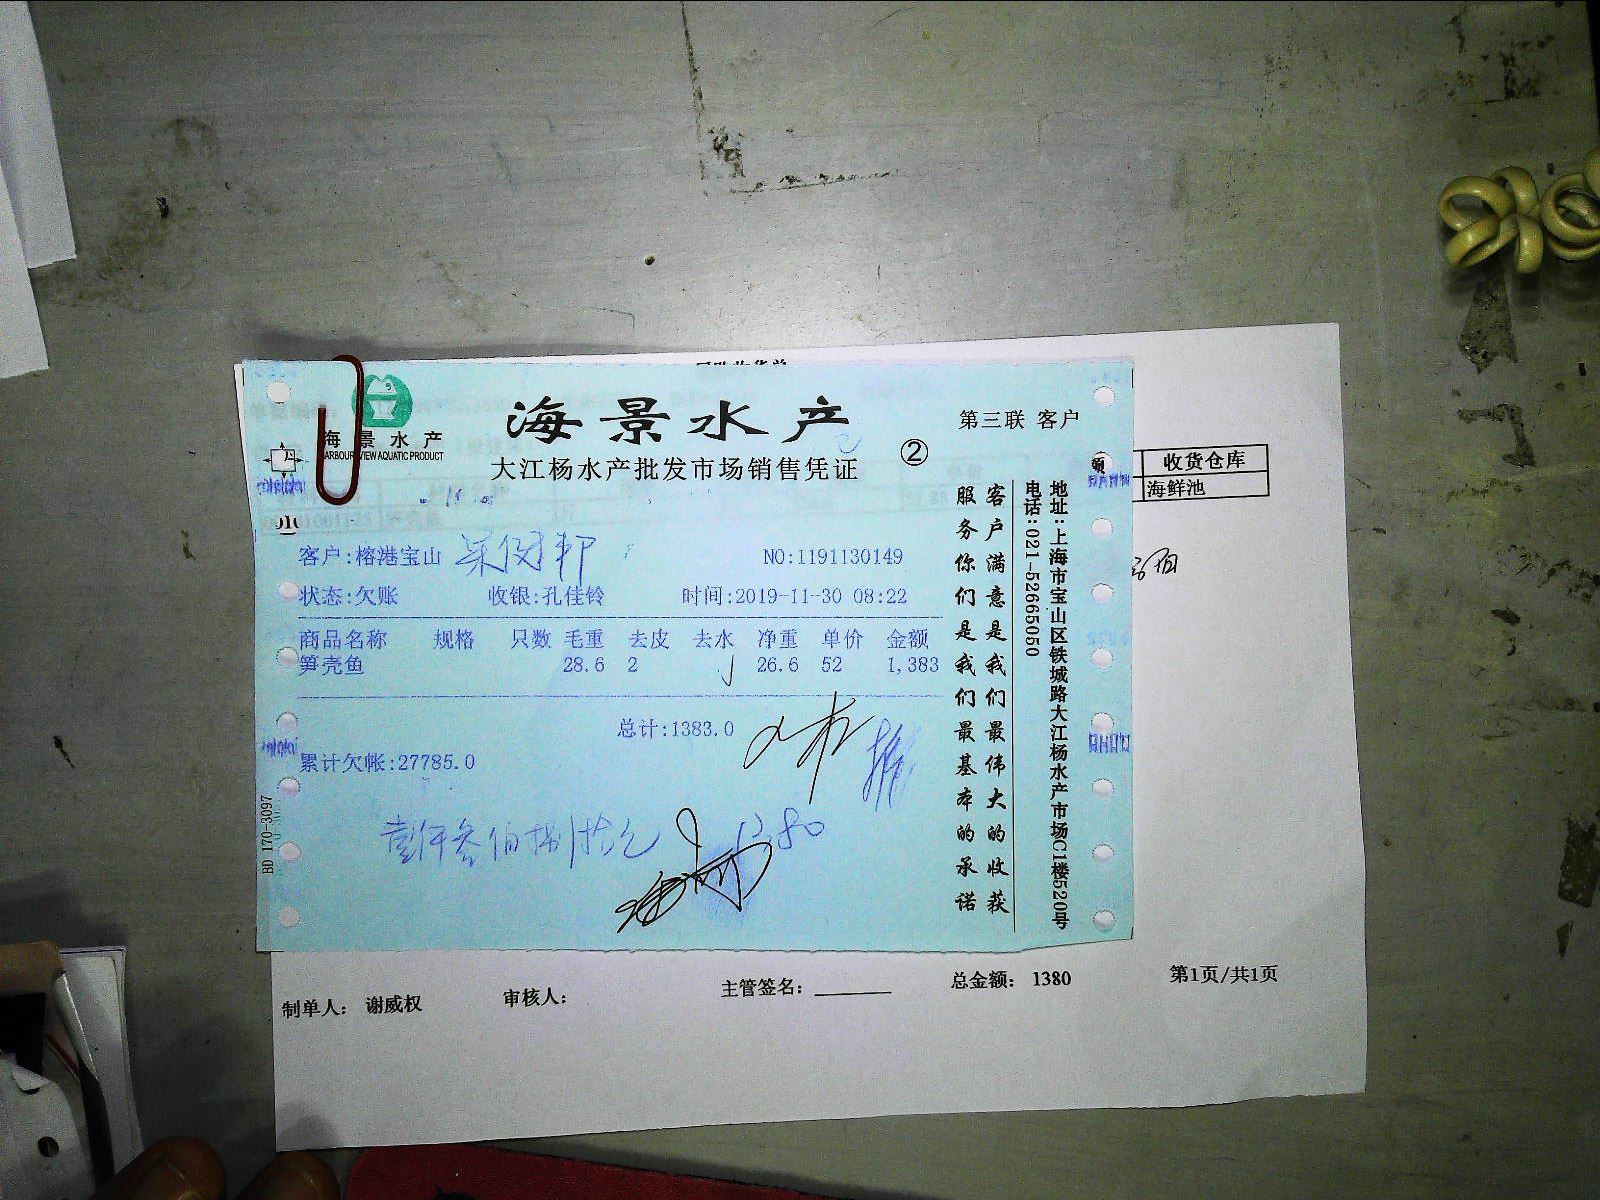 海景水产
HARBOUR VIEW AQUATIC PRODUCT
海景水产
第三联 客户
大江杨水产批发市场销售凭证
②
客户:榕港宝山
NO:1191130149
状态:欠账 收银:孔佳铃 时间:2019-11-30 08:22
商品名称 规格 只数 毛重 去皮 去水 净重 单价 金额
笋壳鱼 28.6 2 26.6 52 1,383
总计:1383.0
累计欠帐:27785.0
壹仟叁佰捌拾元 1380
客户满意是我们最伟大的收获
服务你们是我们最基本的承诺
地址:上海市宝山区铁城路大江杨水产市场C1楼520号
电话:021-52665050
BD 170-3097
收货仓库
海鲜池
制单人: 谢威权 审核人: 主管签名: 总金额: 1380 第1页/共1页